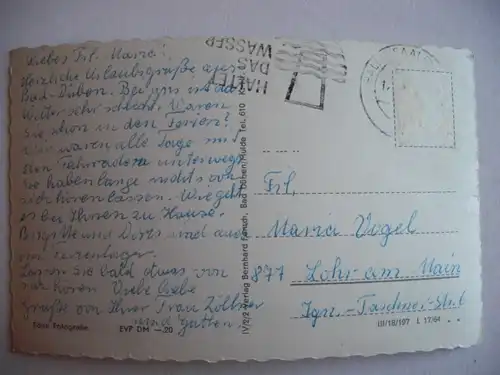 Liebes Frl. Maria!
Herzliche Urlaubsgrüße aus
Bad-Düben. Bei uns ist das
Wetter sehr schön. Waren
Sie schon in den Ferien?
Wir waren alle Tage mit
den Fahrrädern unterwegs
Sie haben lange nichts von
sich hören lassen. Wie geht
es bei Ihnen zu Hause.
Birgitte und Doris sind auch
im Ferienlager.
Lassen Sie bald etwas von
sich hören. Viele liebe
Grüße von Ihrer Frau Zöllner
und Gatten.
Foto Fotografie
EVP DM —.20
IV/2/2 Verlag Bernhard Bad Düben/Mulde Tel. 610
HALTET
DAS
WASSER
Frl.
Maria Vogel
877 Lohr am Main
Ign.-Taschner-Str. 6
III/18/197 L 17/64